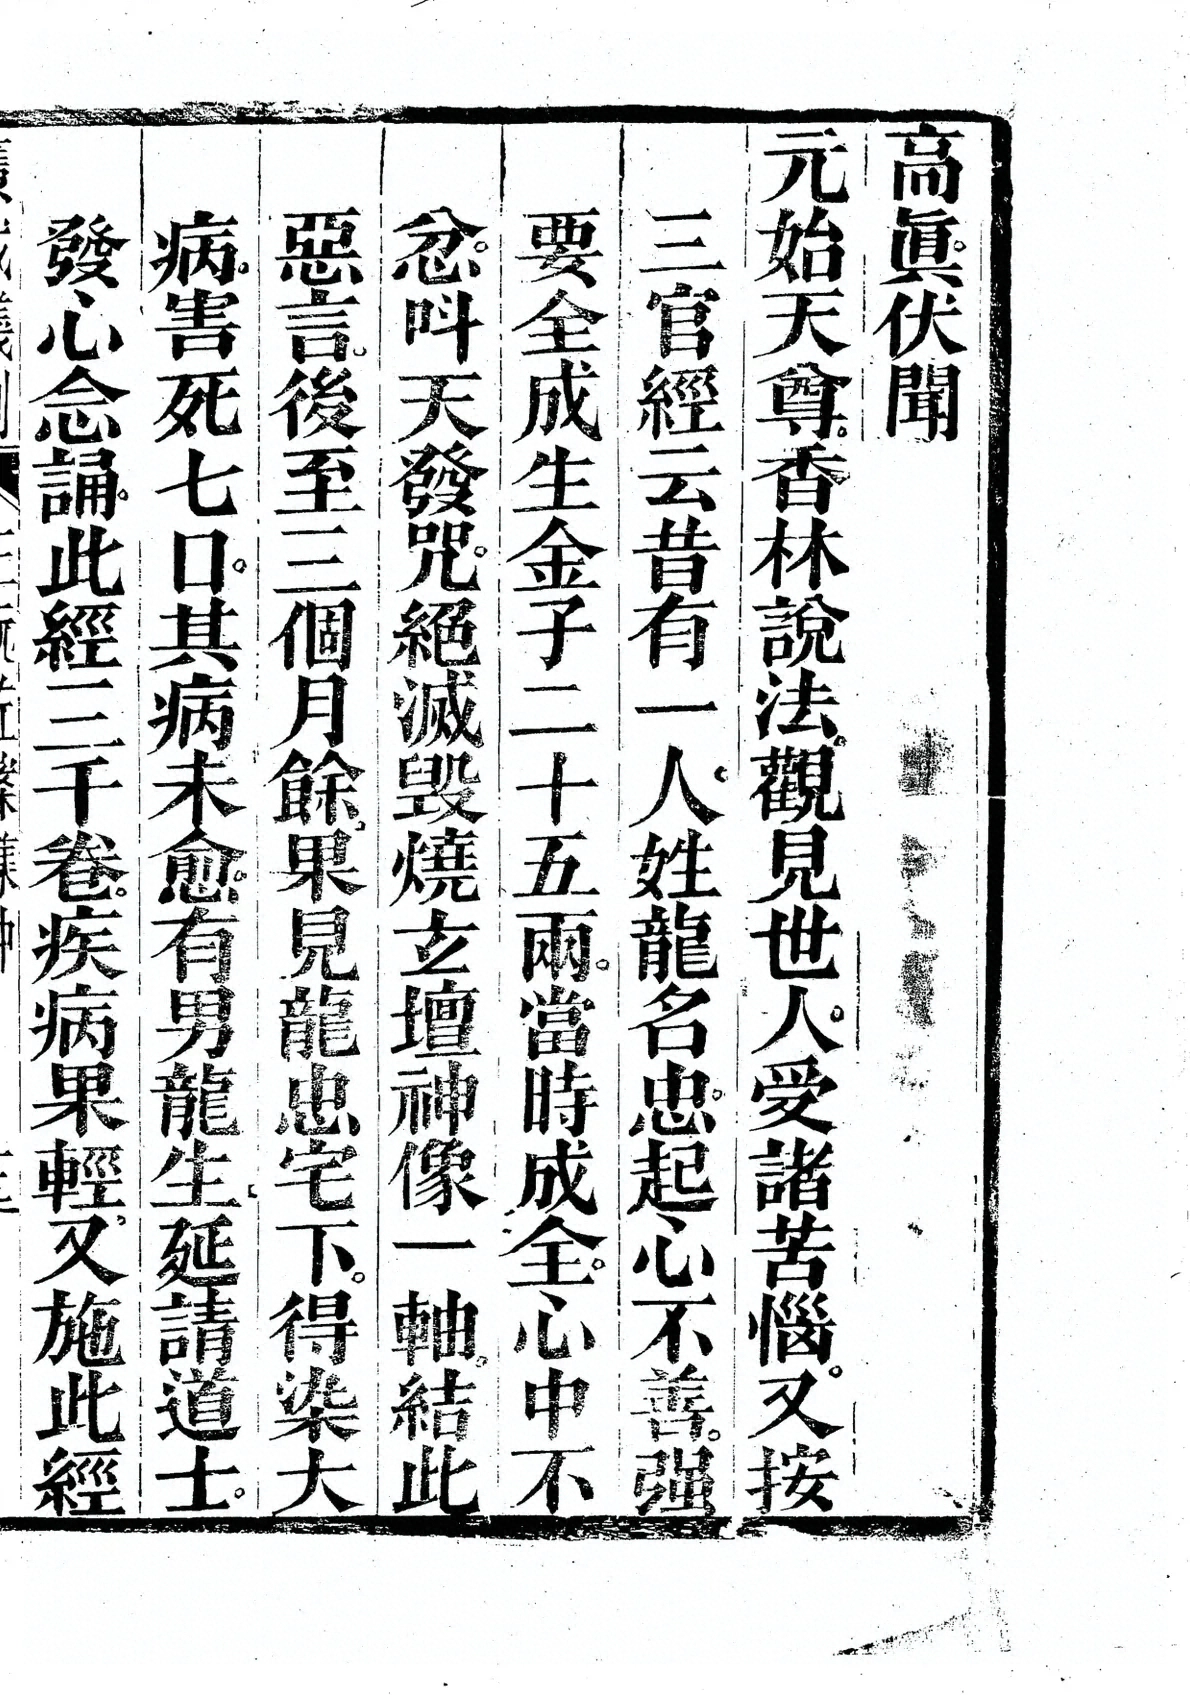 高眞。伏聞
元始天尊。香林說法。觀見世人。受諸苦惱。又按
三官經云昔有一人。姓龍名忠。起心不善。强
要全成生金子二十五兩。當時成全。心中不
忿。呌天發咒。絕滅毀燒玄壇神像一軸。結此
惡言。後至三個月餘。果見龍忠宅下。得染大
病。害死七口。其病未愈。有男龍生延請道士。
發心念誦。此經三千卷。疾病果輕。又施此經